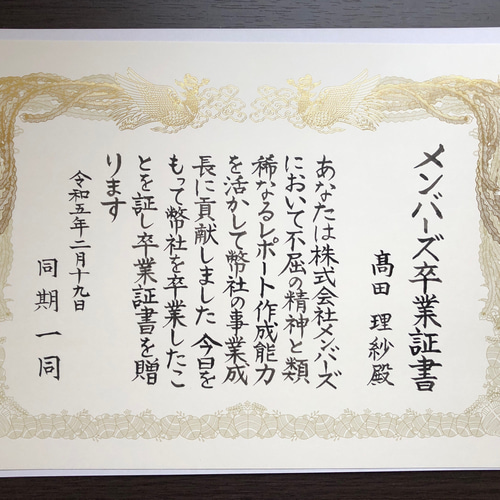 メンバーズ卒業証書
髙田 理紗殿
あなたは株式会社メンバーズ
において不屈の精神と類
稀なるレポート作成能力
を活かして幣社の事業成
長に貢献しました 今日を
もって幣社を卒業したこ
とを証し卒業証書を贈
ります
令和五年二月十九日
同期一同